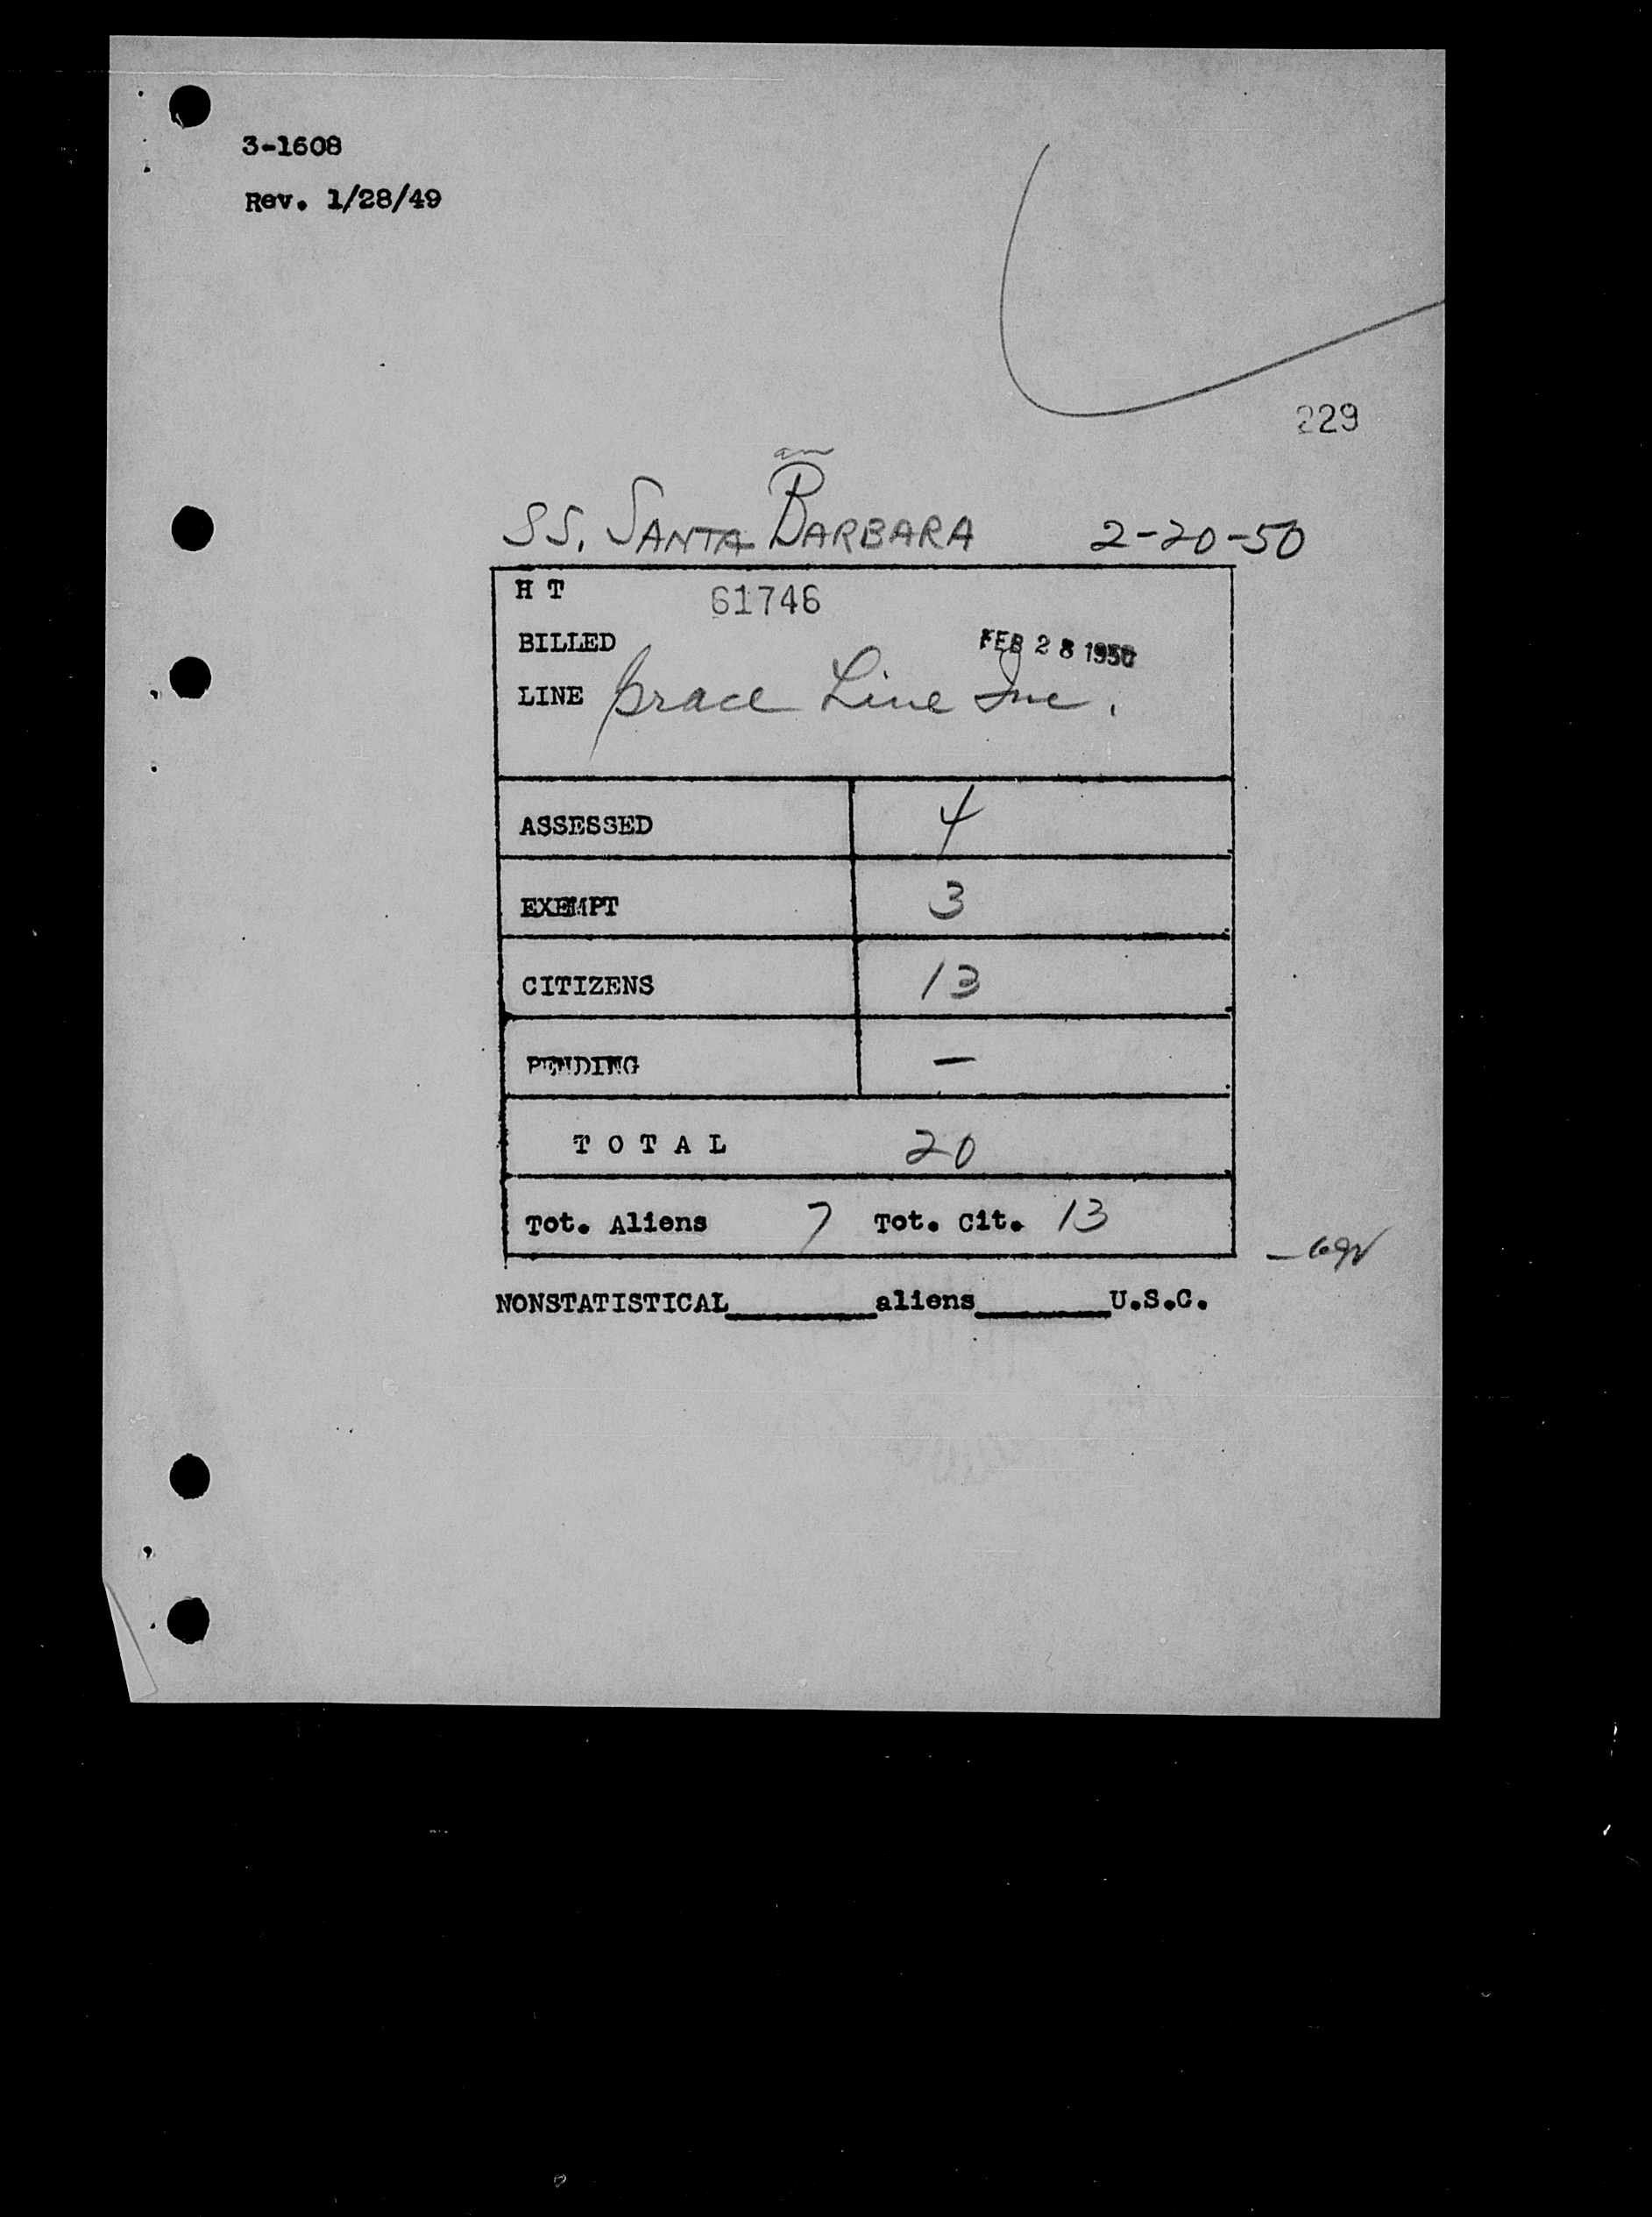 3-1608
Rev. 1/28/49
229
am
SS. SANTA BARBARA 2-20-50
H T 61746
BILLED FEB 28 1950
LINE Grace Line Inc.
ASSESSED 4
EXEMPT 3
CITIZENS 13
PENDING —
T O T A L 20
Tot. Aliens 7 Tot. Cit. 13
NONSTATISTICAL________aliens________U.S.C.